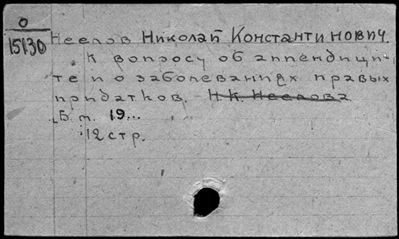 О
15130
Неелов Николай Константинович.
К вопросу об аппендици-
те и о заболеваниях правых
придатков. Н.К. Неелова
Б.м. 19...
12 стр.